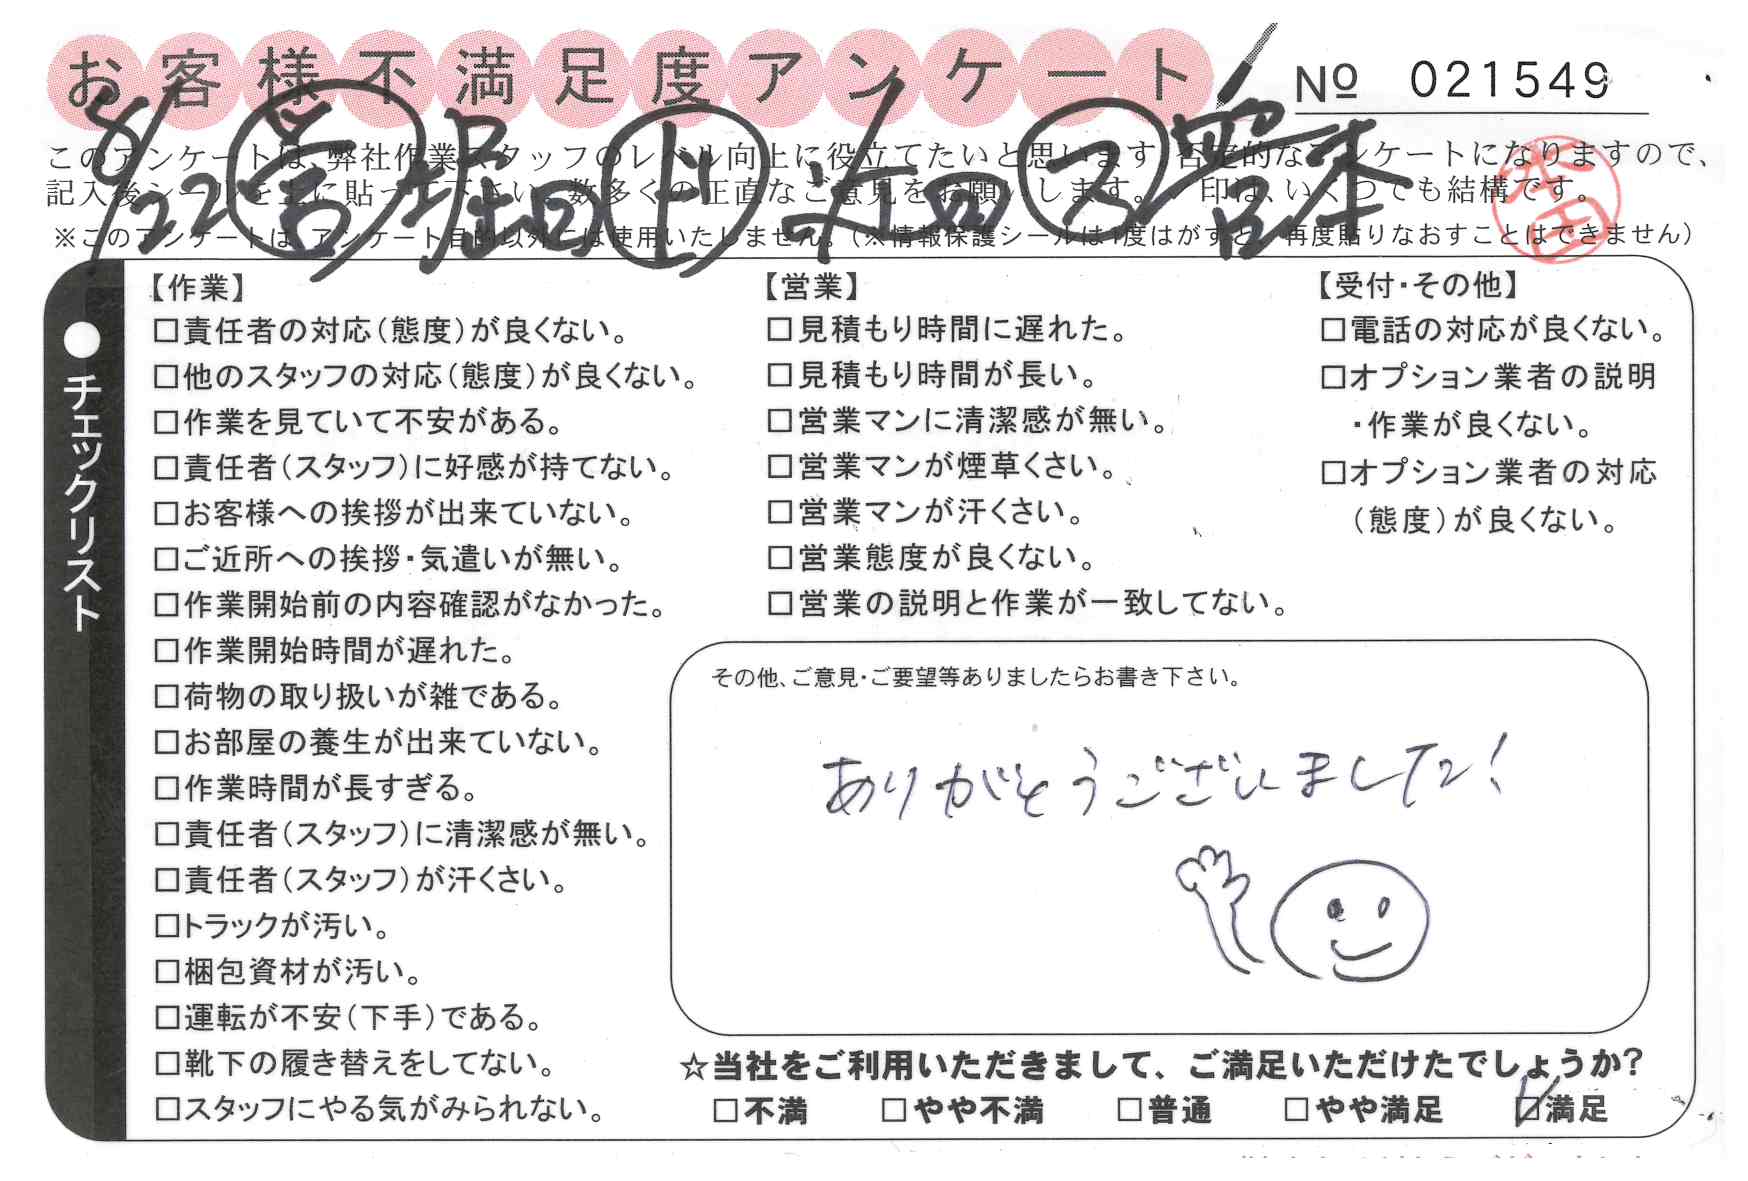 お客様不満足度アンケート
№ 021549
8/22 営 堀田 ド 沢田 ス 宮本
このアンケートは、弊社作業スタッフのレベル向上に役立てたいと思います。否定的なアンケートになりますので、
記入後シールを上に貼って下さい。数多くの正直なご意見をお願いします。✓印は、いくつでも結構です。
※このアンケートは、アンケート目的以外には使用いたしません。（※情報保護シールは1度はがすと、再度貼りなおすことはできません）
●チェックリスト
【作業】
□責任者の対応（態度）が良くない。
□他のスタッフの対応（態度）が良くない。
□作業を見ていて不安がある。
□責任者（スタッフ）に好感が持てない。
□お客様への挨拶が出来ていない。
□ご近所への挨拶・気遣いが無い。
□作業開始前の内容確認がなかった。
□作業開始時間が遅れた。
□荷物の取り扱いが雑である。
□お部屋の養生が出来ていない。
□作業時間が長すぎる。
□責任者（スタッフ）に清潔感が無い。
□責任者（スタッフ）が汗くさい。
□トラックが汚い。
□梱包資材が汚い。
□運転が不安（下手）である。
□靴下の履き替えをしてない。
□スタッフにやる気がみられない。
【営業】
□見積もり時間に遅れた。
□見積もり時間が長い。
□営業マンに清潔感が無い。
□営業マンが煙草くさい。
□営業マンが汗くさい。
□営業態度が良くない。
□営業の説明と作業が一致してない。
【受付・その他】
□電話の対応が良くない。
□オプション業者の説明
・作業が良くない。
□オプション業者の対応
（態度）が良くない。
その他、ご意見・ご要望等ありましたらお書き下さい。
ありがとうございました！
☆当社をご利用いただきまして、ご満足いただけたでしょうか？
□不満 □やや不満 □普通 □やや満足 ☑満足